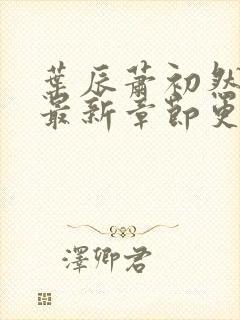 葉辰蕭初然
最新章節更
澤卿君